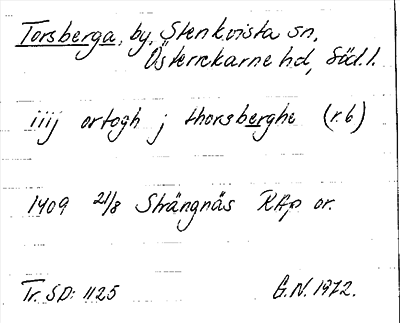 Torsberga, by, Stenkvista sn,
Österrekarne hd, Södl.
iiij ortogh j thorsberghe (r. 6)
1409 21/8 Strängnäs RAp or.
Tr. SD: 1125 G.N. 1972.